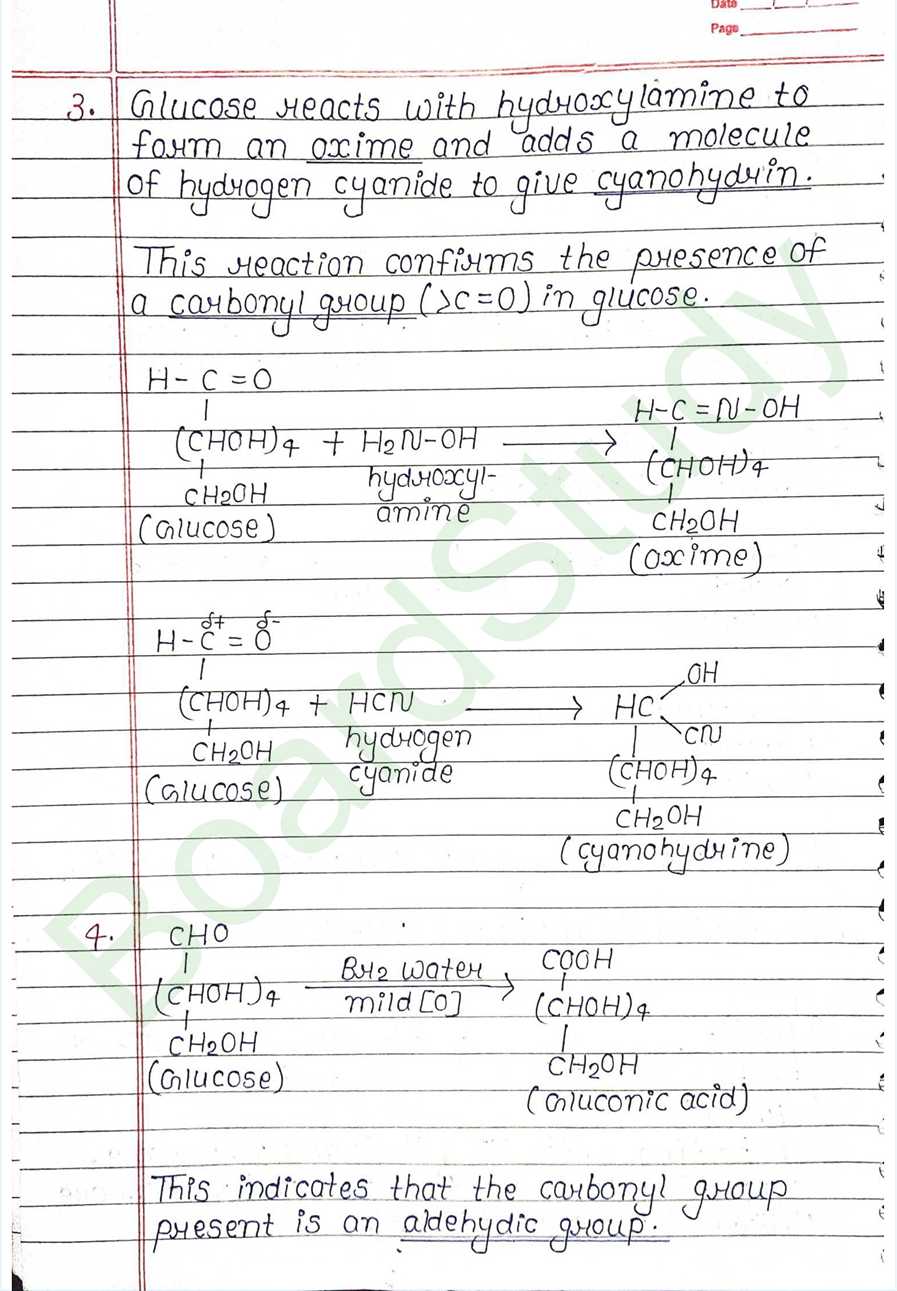 Date
Page
3. Glucose reacts with hydroxylamine to
form an oxime and adds a molecule
of hydrogen cyanide to give cyanohydrin.
This reaction confirms the presence of
a carbonyl group (>C=O) in glucose.
H-C=O
|
(CHOH)4 + H2N-OH ⟶
|
CH2OH
(Glucose)
hydroxyl-
amine
H-C=N-OH
|
(CHOH)4
|
CH2OH
(oxime)
δ+ δ-
H-C=O
|
(CHOH)4 + HCN ⟶
|
CH2OH
(Glucose)
hydrogen
cyanide
OH
HC
CN
|
(CHOH)4
|
CH2OH
(cyanohydrine)
4. CHO
|
(CHOH)4
|
CH2OH
(Glucose)
Br2 water
⟶
mild [O]
COOH
|
(CHOH)4
|
CH2OH
(Gluconic acid)
This indicates that the carbonyl group
present is an aldehydic group.
BoardStudy